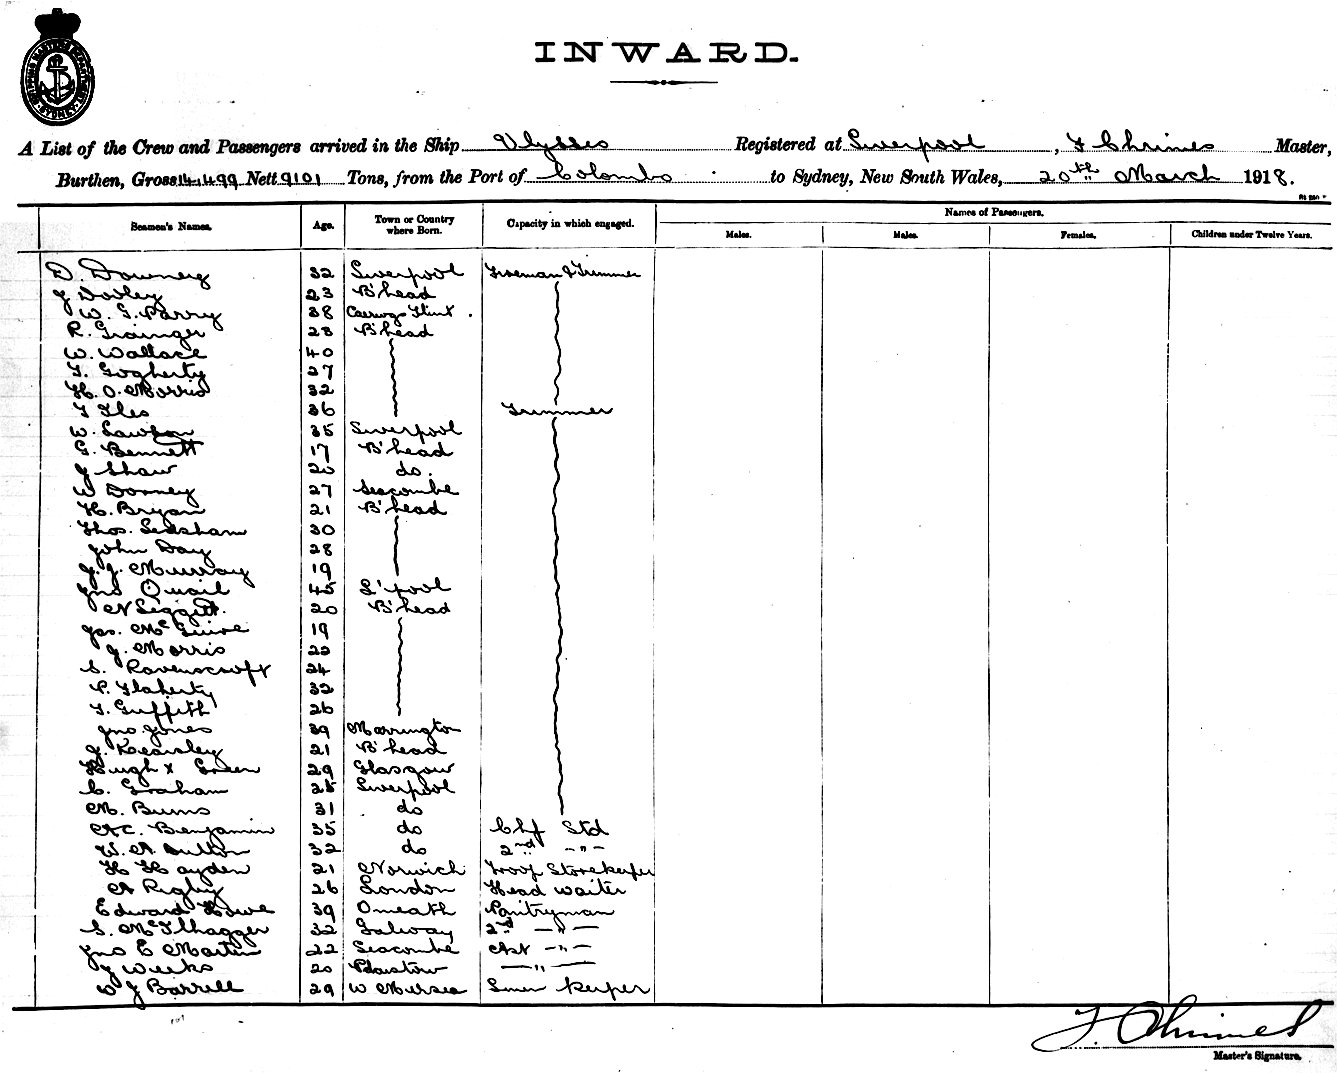 SHIPPING MASTER'S DEPARTMENT SYDNEY
INWARD.
A List of the Crew and Passengers arrived in the Ship Ulysses Registered at Liverpool, F Chrimes Master,
Burthen, Gross 14499 Nett 9101 Tons, from the Port of Colombo to Sydney, New South Wales, 20th March 1918.
Seamen's Names. Age. Town or Country where Born. Capacity in which engaged. Names of Passengers.
Males. Males. Females. Children under Twelve Years.
D. Downey 32 Liverpool Fireman & Trimmer
J Dooley 23 B'head
W. G. Parry 38 Caerwys Flint.
R. Grainger 28 B'head
W. Wallace 40
T. Gogherty 27
H. O. Morris 32
T Iles 36 Trimmer
W. Lawton 35 Liverpool
G. Bennett 17 B'head
J Shaw 20 do.
W Dorney 27 Seacombe
H. Bryan 21 B'head
Thos. Ledsham 30
John Day 28
J. J. Murray 19
Jno Quail 45 L'pool
A Liggitt. 20 B'head
Jas. McGuire 19
J. Morris 22
S. Ravenscroft 24
P. Flaherty 32
T. Griffith 26
Jno Jones 39 Mornington
J. Kearsley 21 B'head
Hugh x Green 29 Glasgow
C. Graham 25 Liverpool
M. Burns 31 do
A C. Benjamin 35 do Chf Std
W. A. Dutton 32 do 2nd -"-
H Hayden 21 Norwich Troop Storekeeper
A Rigby 26 London Head waiter
Edward Howe 39 Omeath Pantryman
S. McIlhagger 32 Galway 2nd -"-
Jno E Martin 22 Seacombe Asst -"-
J Weeks 20 Plaistow -"-
W J Barrell 29 W Mersea Linen Keeper
F. Chrimes
Master's Signature.